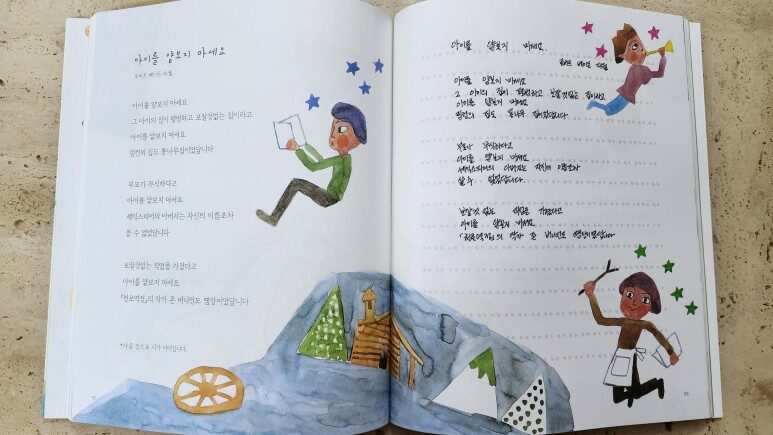 아이를 얕보지 마세요
로버트 베이든 파월
아이를 얕보지 마세요
그 아이의 집이 평범하고 보잘것없는 집이라고
아이를 얕보지 마세요
링컨의 집도 통나무집이었답니다
부모가 무식하다고
아이를 얕보지 마세요
셰익스피어의 아버지는 자신의 이름조차
쓸 수 없었답니다
보잘것없는 직업을 가졌다고
아이를 얕보지 마세요
『천로역정』의 작가 존 버니언도 땜장이였답니다
*다음 장으로 시가 이어집니다.
92
아이를 얕보지 마세요.
로버트 베이든 파월
아이를 얕보지 마세요
그 아이의 집이 평범하고 보잘것없는 집이라고
아이를 얕보지 마세요
링컨의 집도 통나무 집이었답니다.
부모가 무식하다고
아이를 얕보지 마세요
셰익스피어의 아버지는 자신의 이름조차
쓸 수 없었답니다.
보잘것 없는 직업을 가졌다고
아이를 얕보지 마세요
『천로역정』의 작가 존 버니언도 땜장이였답니다
93